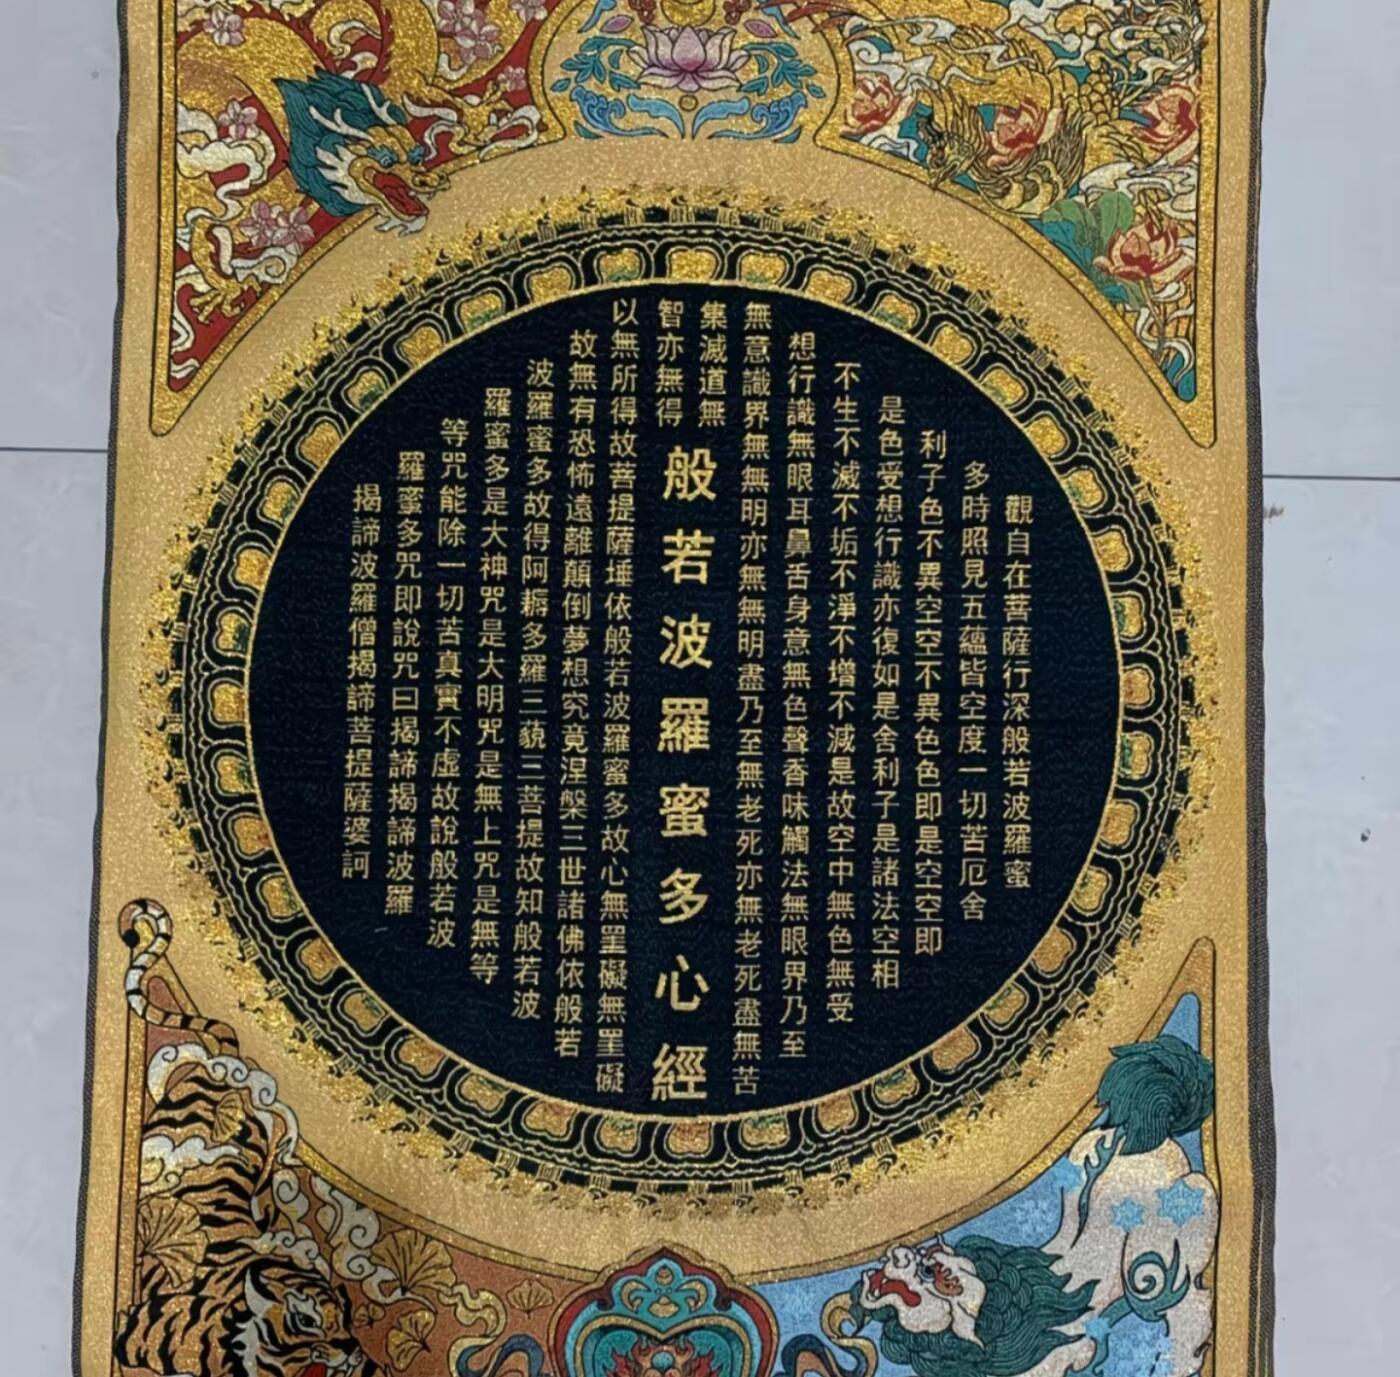 般若波羅蜜多心經
觀自在菩薩行深般若波羅蜜
多時照見五蘊皆空度一切苦厄舍
利子色不異空空不異色色即是空空即
是色受想行識亦復如是舍利子是諸法空相
不生不滅不垢不淨不增不減是故空中無色無受
想行識無眼耳鼻舌身意無色聲香味觸法無眼界乃至
無意識界無無明亦無無明盡乃至無老死亦無老死盡無苦
集滅道無
智亦無得
以無所得故菩提薩埵依般若波羅蜜多故心無罣礙無罣礙
故無有恐怖遠離顛倒夢想究竟涅槃三世諸佛依般若
波羅蜜多故得阿耨多羅三藐三菩提故知般若波
羅蜜多是大神咒是大明咒是無上咒是無等
等咒能除一切苦真實不虛故說般若波
羅蜜多咒即說咒曰揭諦揭諦波羅
揭諦波羅僧揭諦菩提薩婆訶